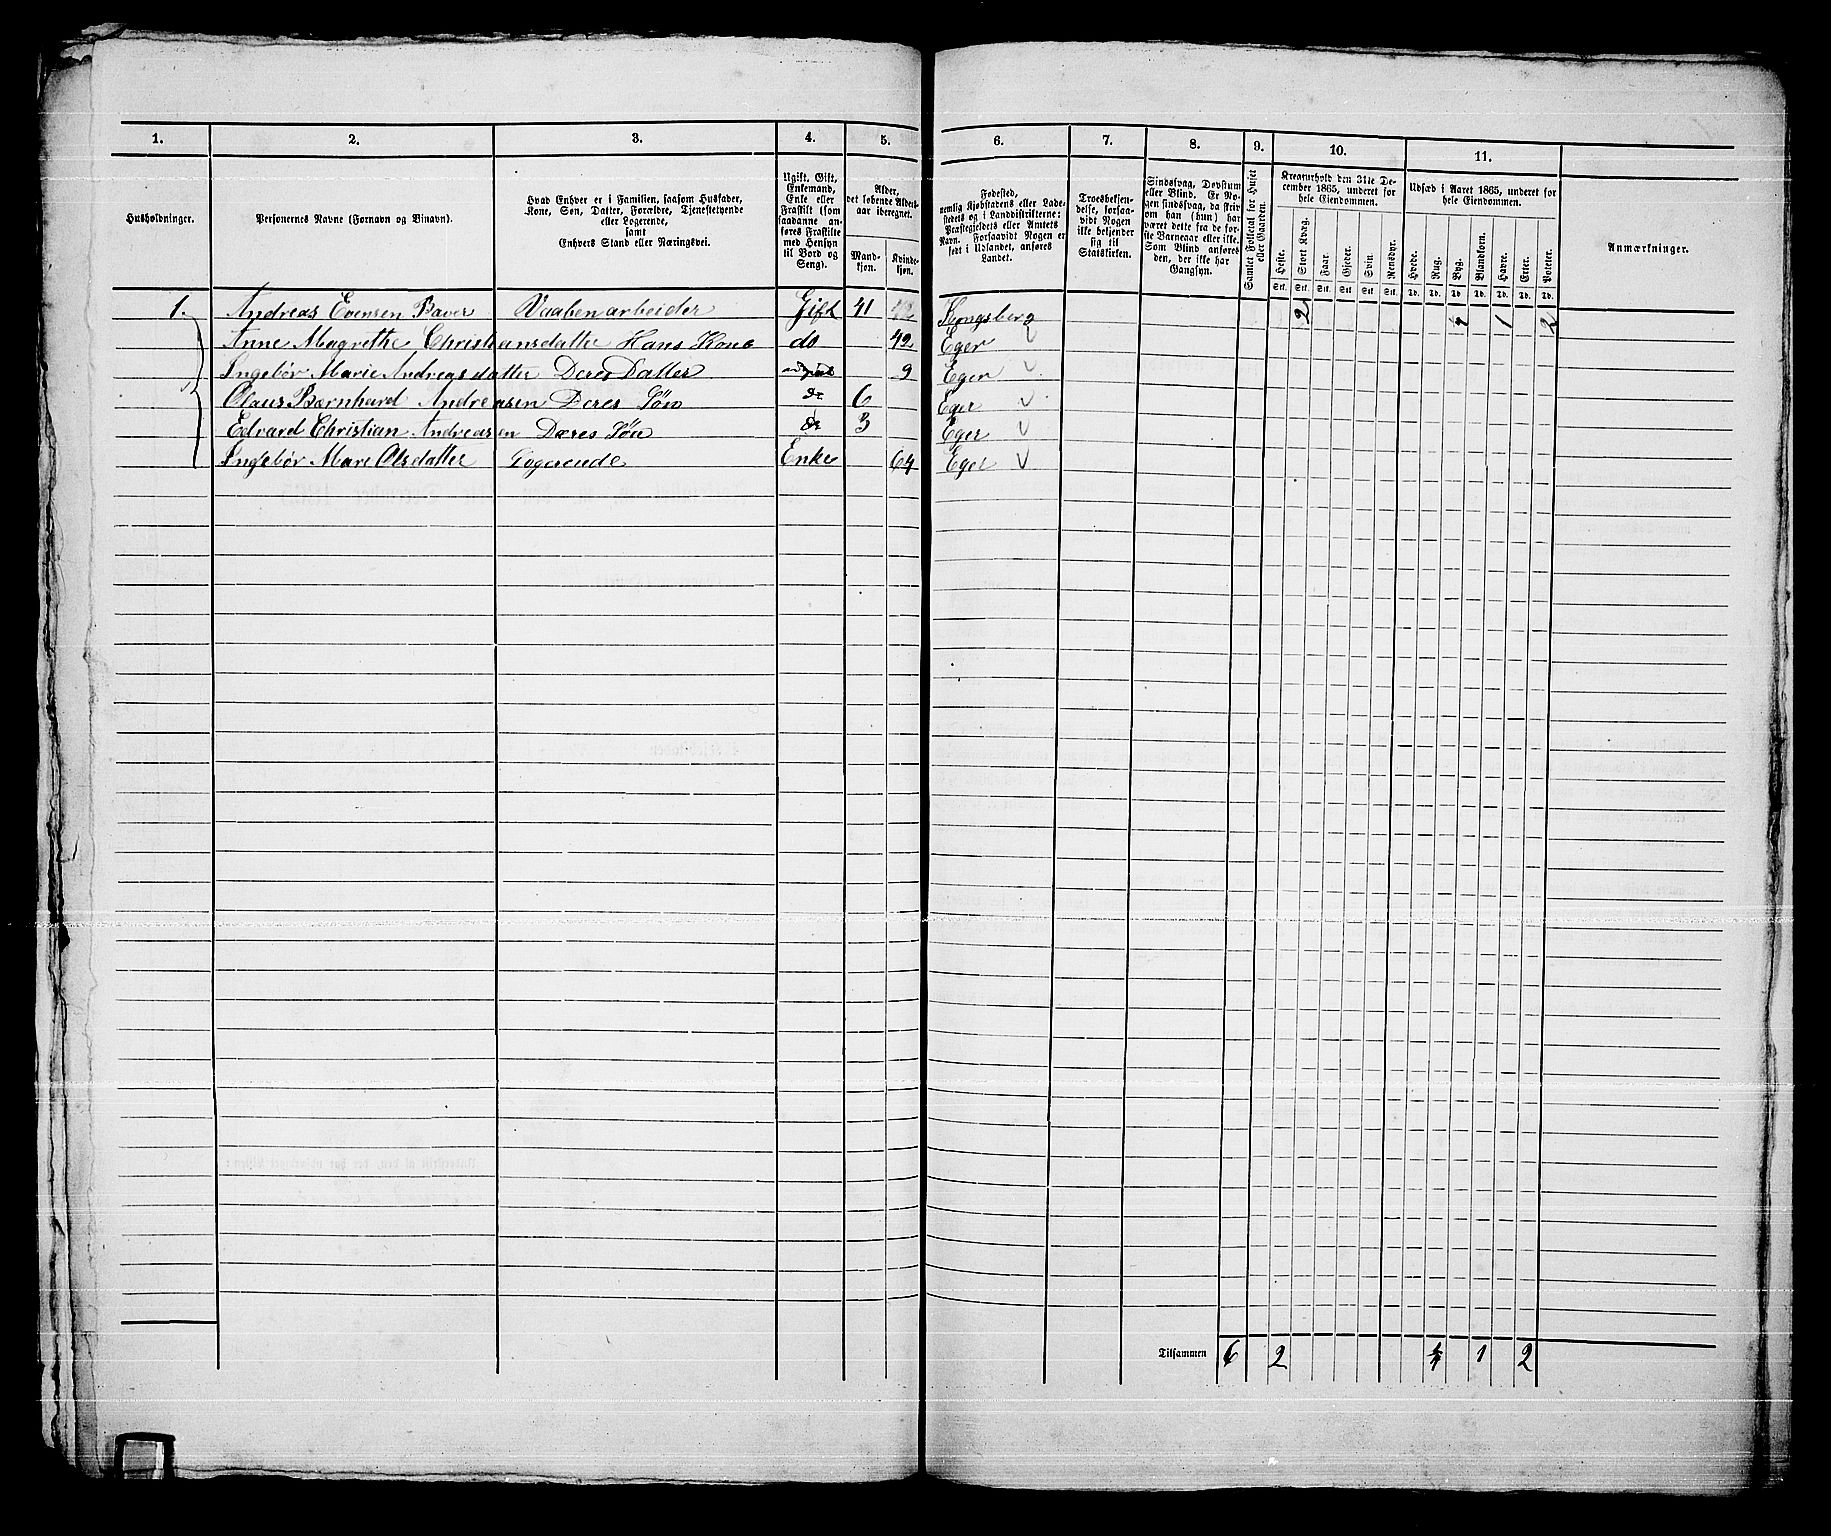 1. 2. 3. 4. 5. 6. 7. 8. 9. 10. 11.
Husholdninger.
Personernes Navne (Fornavn og Binavn).
Hvad Enhver er i Familien, saasom Husfader,
Kone, Søn, Datter, Forældre, Tjenestetyende
eller Logerende,
samt
Enhvers Stand eller Næringsvei.
Ugift, Gift,
Enkemand,
Enke eller
Fraskilt (som
saadanne an-
føres Fraskilte
med Hensyn
til Bord og
Seng).
Alder,
det løbende Alders-
aar iberegnet.
Mand-
kjøn.
Kvinde-
kjøn.
Fødested,
nemlig Kjøbstadens eller Lade-
stedets og i Landdistrikterne:
Præstegjeldets eller Annexets
Navn. Forsaavidt Nogen er
født i Udlandet, anføres
Landet.
Troesbekjen-
delse, forsaa-
vidt Nogen
ikke bekjender
sig til
Statskirken.
Sindssvag, Døvstum
eller Blind. Er No-
gen sindssvag, da skriv
om han (hun) har
været dette fra de før-
ste Barneaar eller ikke.
Som Blind anføres
den, der ikke har
Gangsyn.
Samlet Folketal for Huset
eller Gaarden.
Kreaturhold den 31te De-
cember 1865, underet for
hele Eiendommen.
Heste. Stort Kvæg. Faar. Gjeder. Svin. Rensdyr.
Stk. Stk. Stk. Stk. Stk. Stk.
Udsæd i Aaret 1865, underet for
hele Eiendommen.
Hvede. Rug. Byg. Blandkorn. Havre. Erter. Poteter.
Td. Td. Td. Td. Td. Td. Td.
Anmærkninger.
1. Andreas Evensen Baver Vaabenarbeider Gift 41 Kongsberg 2 1 2
Anne Magrethe Christiansdatter Hans Kone do 42 Eger
Ingebør Marie Andreasdatter Deres Datter 9 Eger
Claus Bernhard Andreasen Deres Søn do 6 Eger
Edvard Christian Andreasen Deres Søn do 3 Eger
Ingebør Mari Olsdatter Logerende Enke 64 Eger
Tilsammen 6 2 1 2